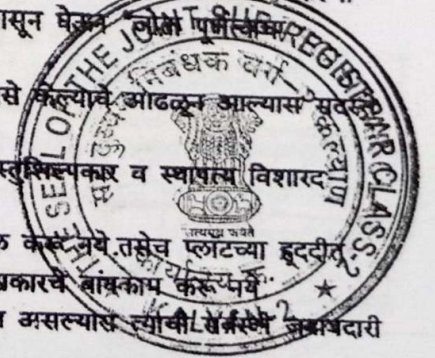 सून घेऊन लोना
से केल्याचे आढळून आल्यास सदर
स्तुशिल्पकार व स्थापत्य विशारद
क करू नये.तसेच प्लाटच्या हद्दीत
प्रकारचे बांधकाम करू नये
असल्यास त्याची सर्वस्वी जबाबदारी
THE SEAL OF THE JOINT SUB REGISTRAR CLASS-2
सह दुय्यम निबंधक वर्ग २ कल्याण
सत्यमेव जयते
कार्यालय